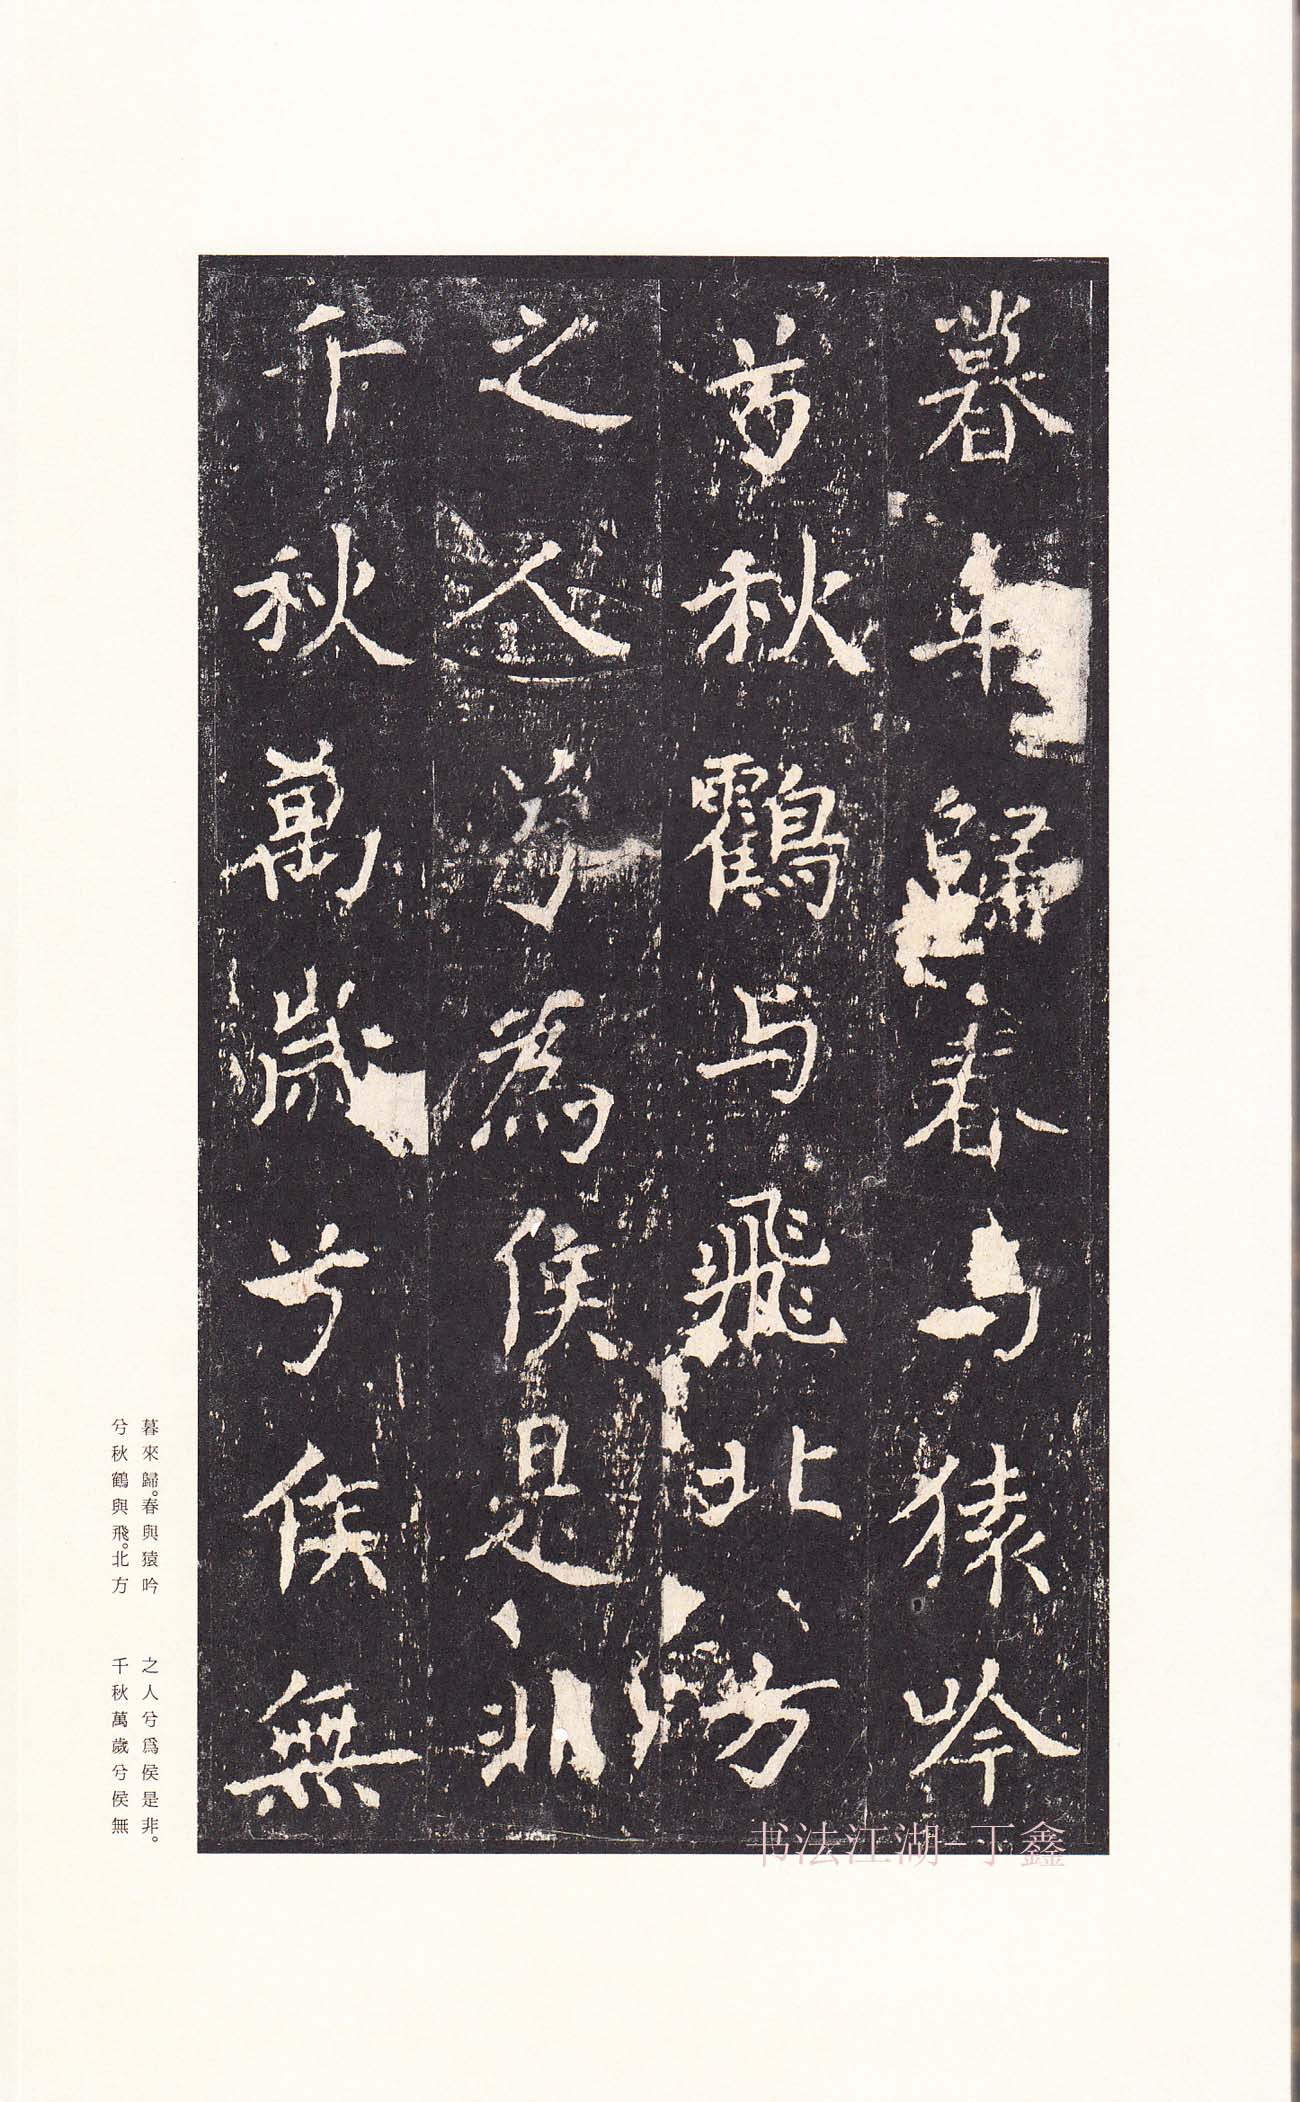 暮來歸春与猿吟
兮秋鶴与飛北方
之人兮為侯是非
千秋萬歲兮侯無
暮來歸。春與猿吟
兮秋鶴與飛。北方
之人兮爲侯是非。
千秋萬歲兮侯無
书法江湖-丁鑫